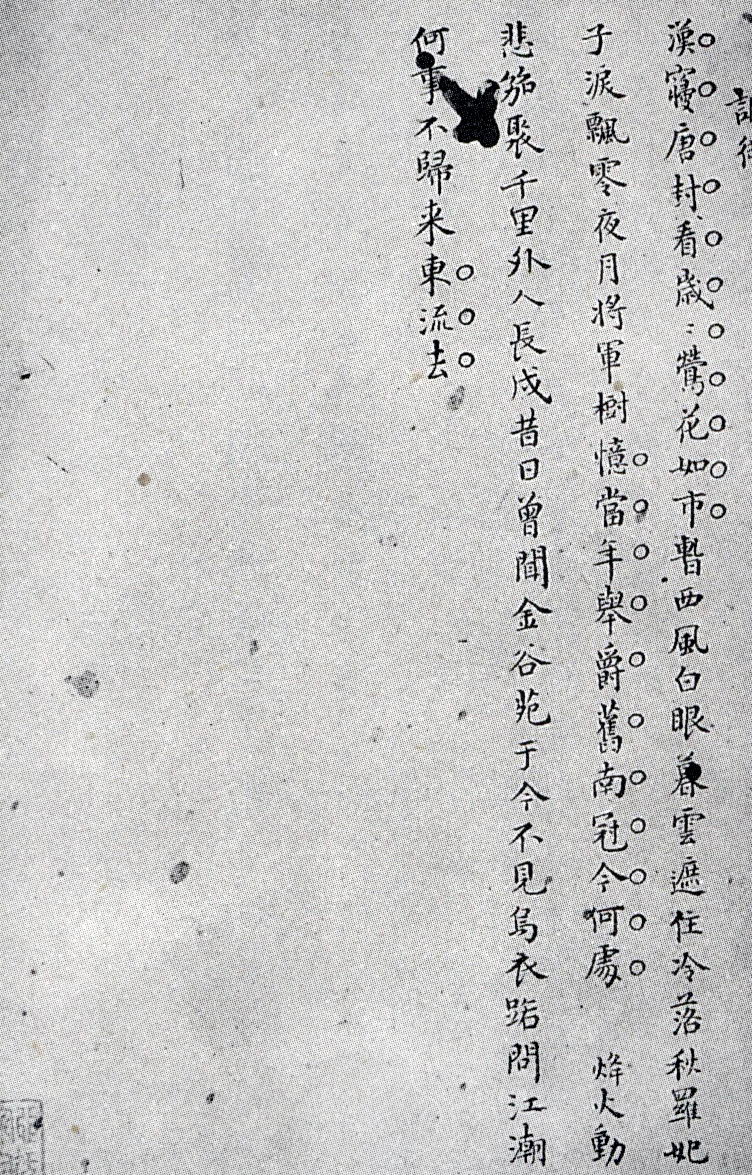 漢寢唐封看歲〻鶯花如市暫西風白眼暮雲遮住冷落秋羅妃
子淚飄零夜月將軍樹憶當年舉爵舊南冠今何處　烽火動
悲笳聚千里外人長戍昔日曾聞金谷苑于今不見烏衣路問江潮
何事不歸来東流去